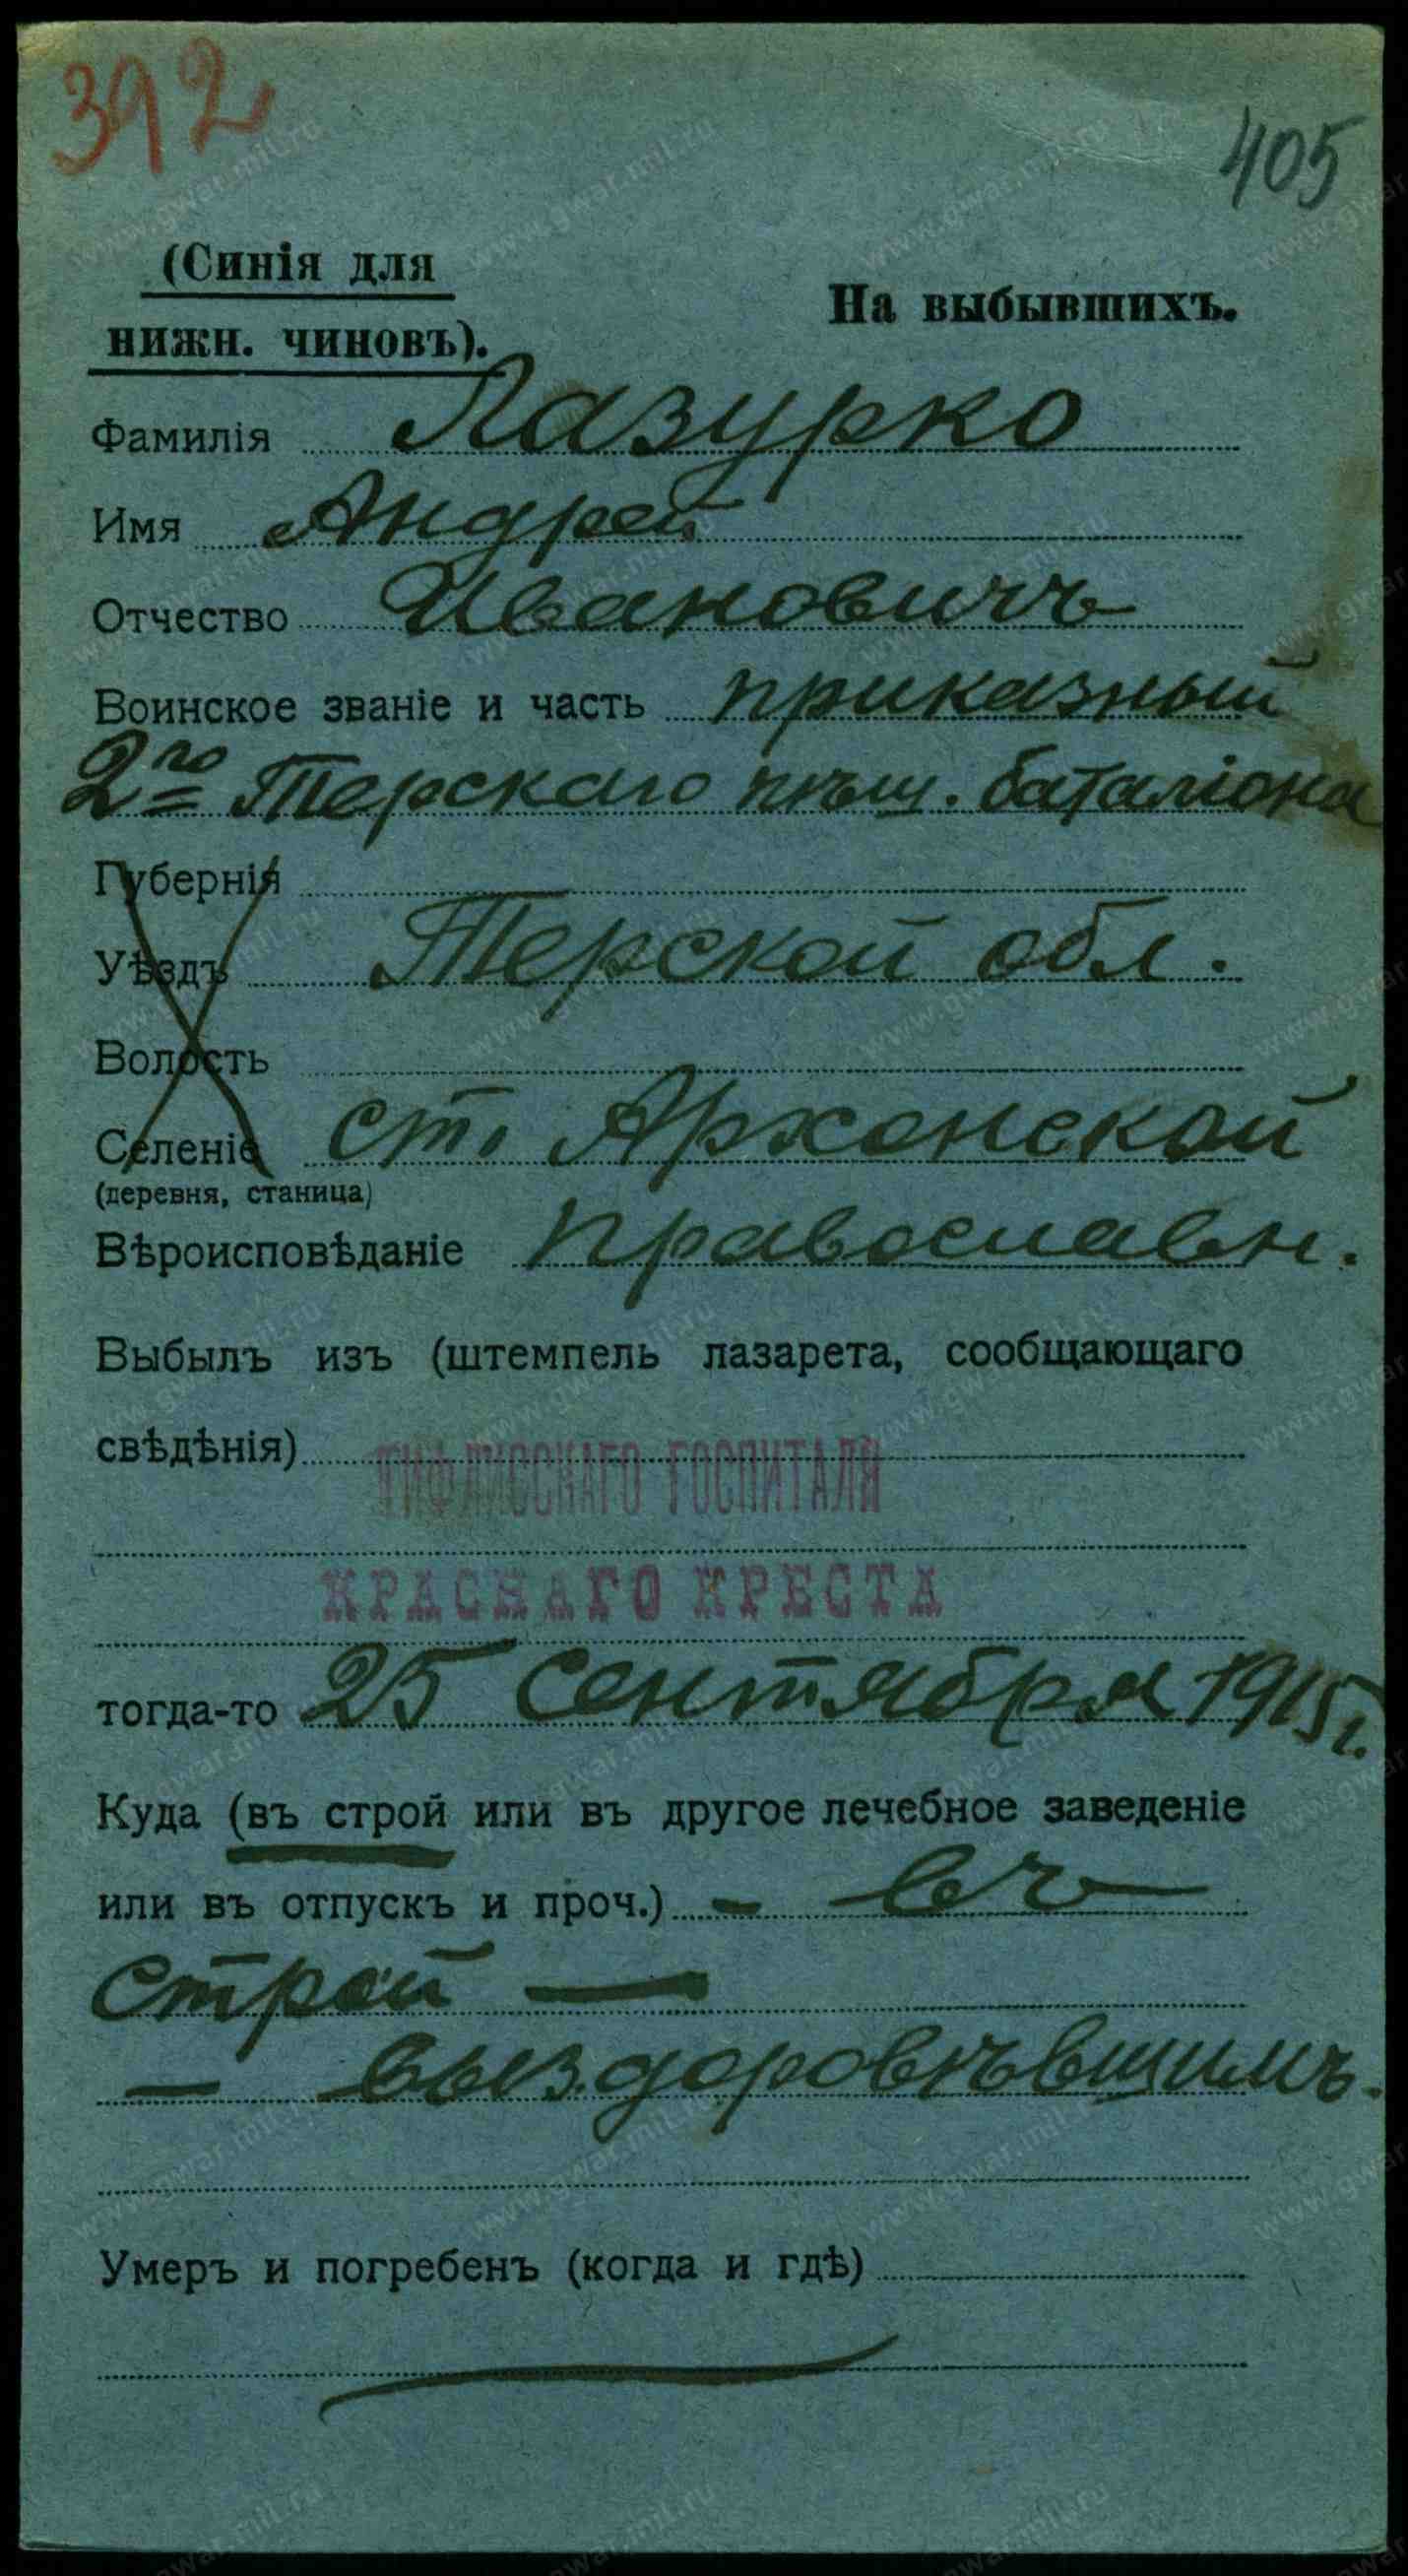 392
405
(Синія для
нижн. чиновъ).
На выбывшихъ.
Фамилія Лазурко
Имя Андрей
Отчество Ивановичъ
Воинское званіе и часть приказный
2го Терскаго пѣш. баталіона
Губернія
Уѣздъ Терской обл.
Волость
Селеніе ст. Архонской
(деревня, станица)
Вѣроисповѣданіе православн.
Выбылъ изъ (штемпель лазарета, сообщающаго
свѣдѣнія)
ТИФЛИССКАГО ГОСПИТАЛЯ
КРАСНАГО КРЕСТА
тогда-то 25 сентября 1915 г.
Куда (въ строй или въ другое лечебное заведеніе
или въ отпускъ и проч.) - въ
строй —
— выздоровѣвшимъ.
Умеръ и погребенъ (когда и гдѣ)
www.gwar.mil.ru